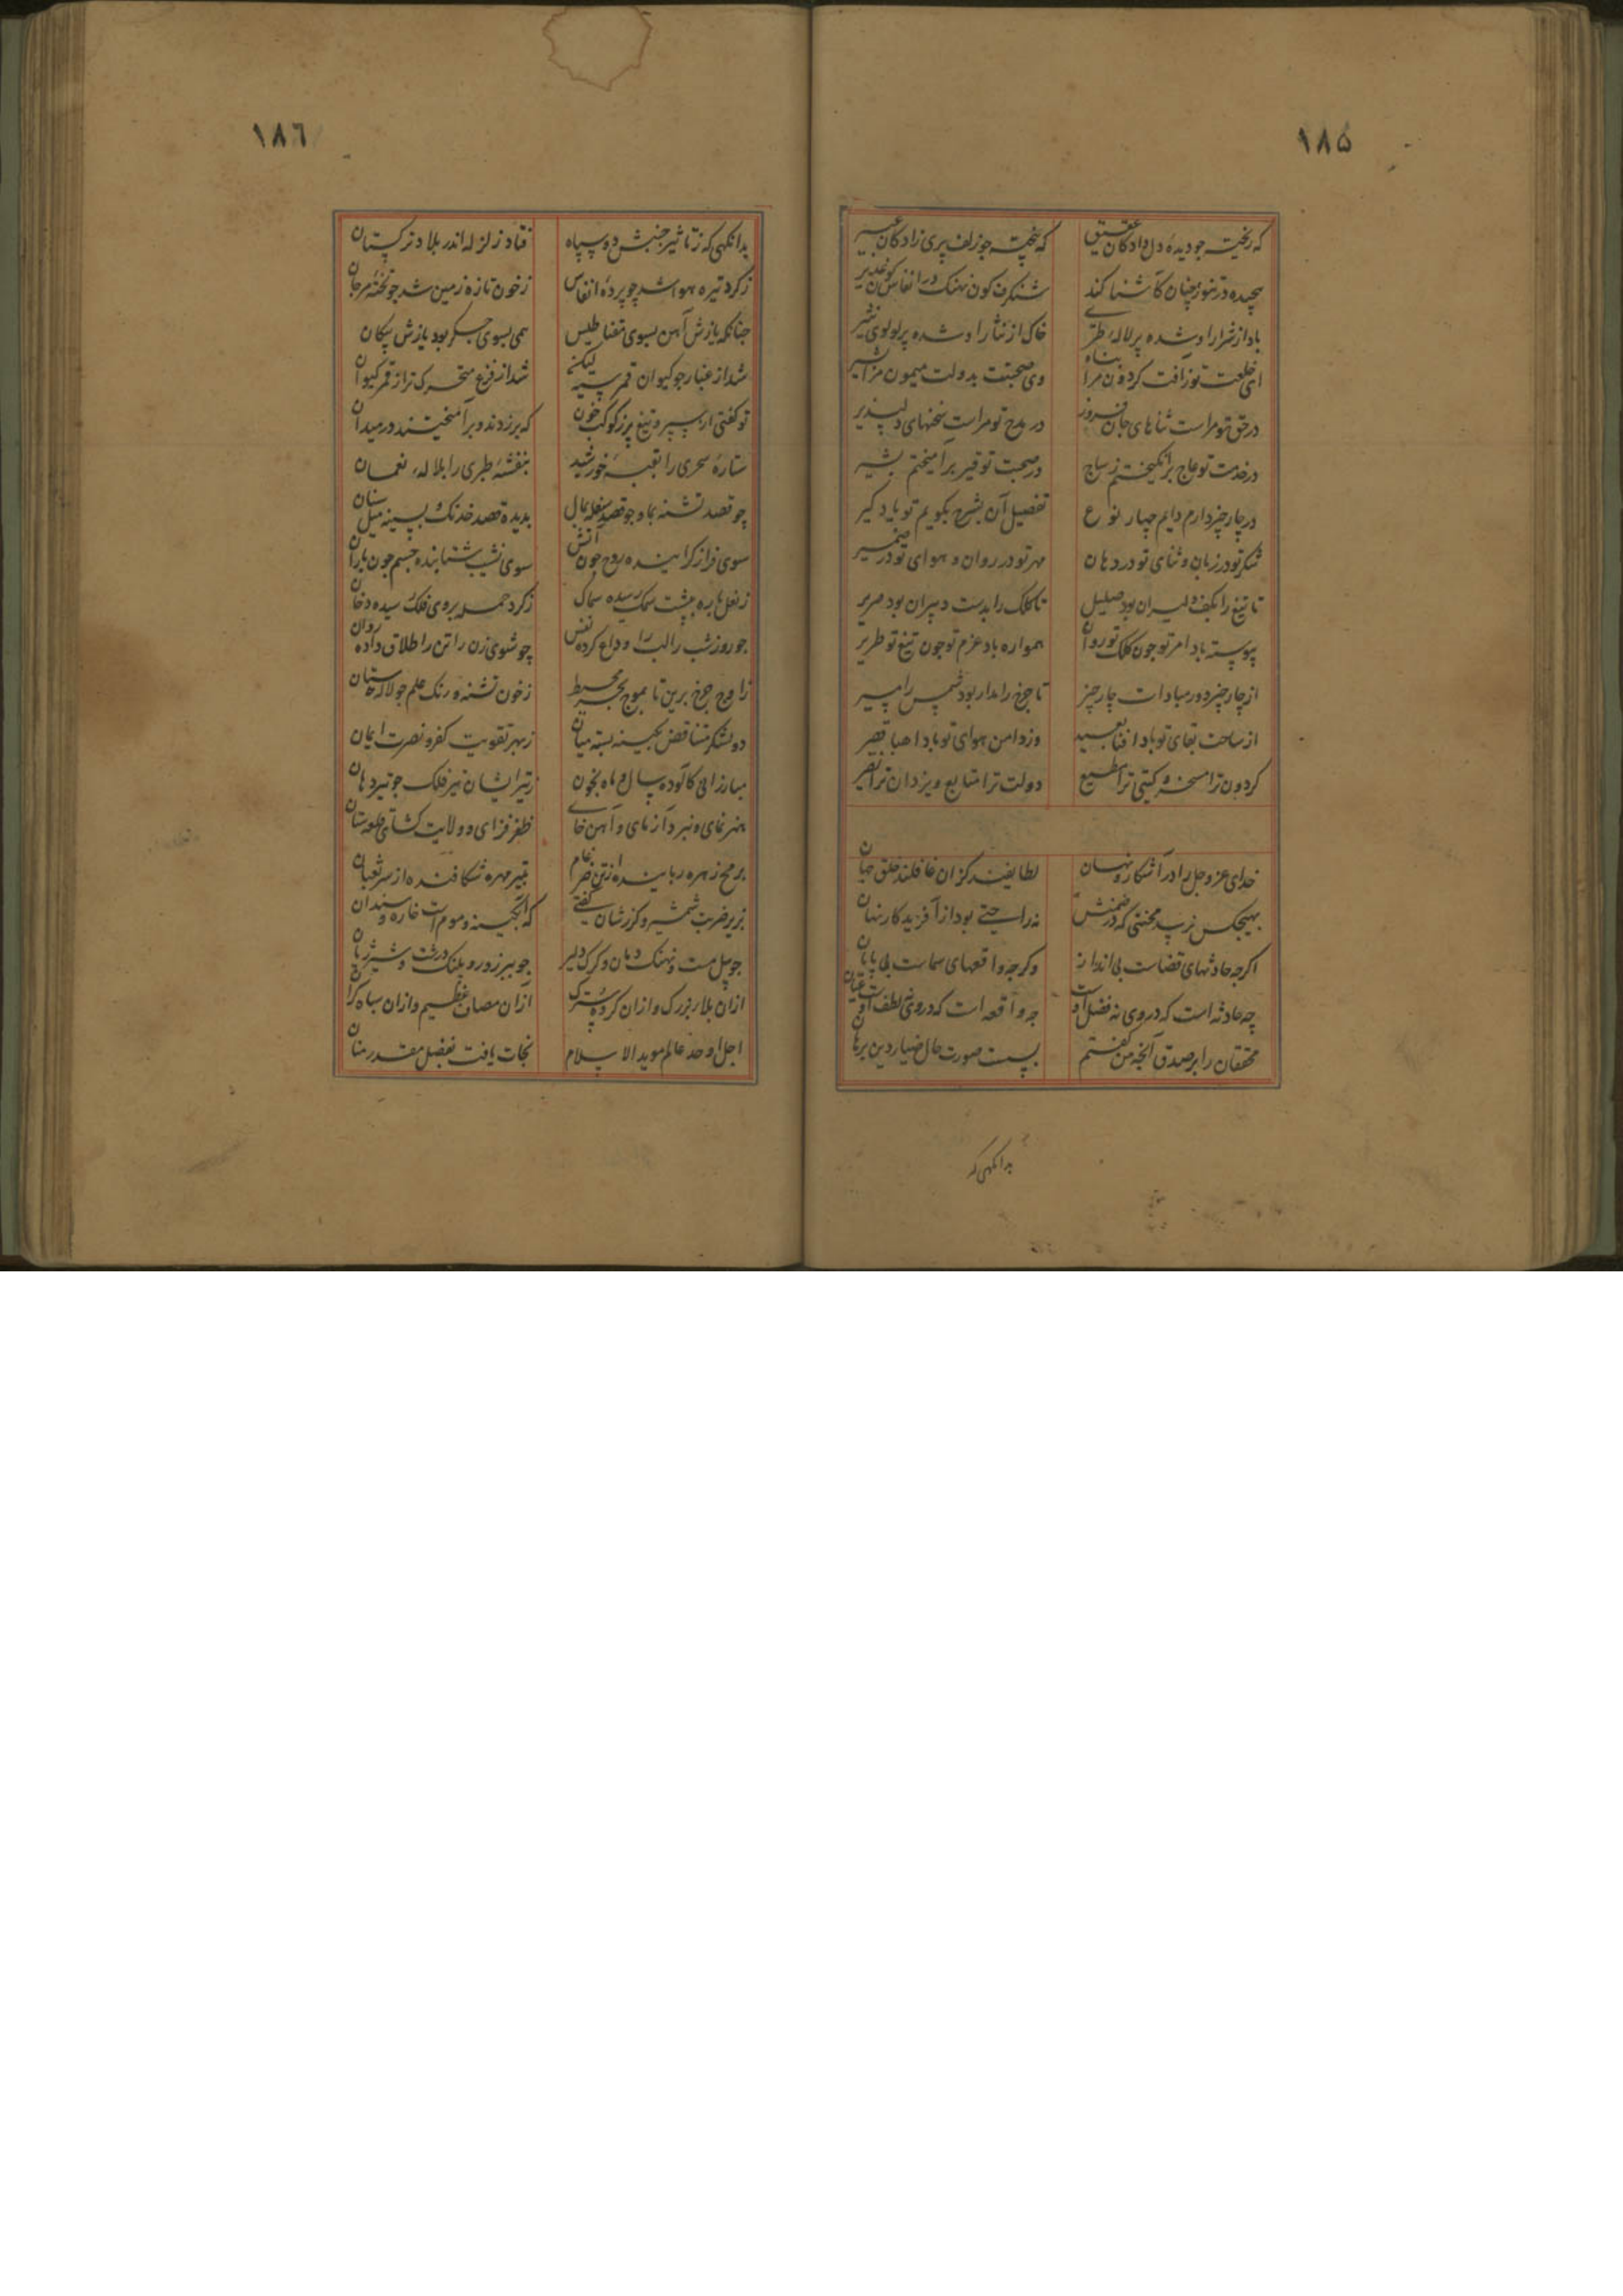 ۱۸۵
که ریخت چو دیدهٔ دل دادکان عقیق که بیخت جو زلف پری زادکان عبیر
پیچیده در تنور چنان کآشنا کند شنکرف کون نهنک در انفاس غدیر
باد از شرار او شده پر لاله طری خاک از نثار او شده پر لولوی نثیر
ای خلعت تو زآفت کردون مرا پناه وی صحبتت بدولت میمون مرا مشیر
در حق تو مراست ثناهای جان فروز در مدح تو مراست سخنهای دلپذیر
در خدمت تو عاج برانکیختم ز ساج در صحبت تو قیر برآمیختم بشیر
در چار چیز دارم دایم چهار نوع تفصیل آن بشرح بکویم تو یاد کیر
شکر تو در زبان و ثنای تو در دهان مهر تو در روان و هوای تو در ضمیر
تا تیغ را بکف دلیران بود صلیل تا کلک را بدست دبیران بود صریر
پیوسته باد امر تو چون کلک تو روان همواره باد عزم تو جون تیغ تو طریر
از چار چیز دور مبادات چار چیز تا چرخ را مدار بود شمس را مسیر
از ساحت بقای تو باد افنا بعید وز دامن هوای تو باد اهبا قصیر
کردون ترا مسخر و کیتی ترا مطیع دولت ترا متابع و یزدان ترا نصیر
خدای عز و جل را در آشکار و نهان لطایفند کزان غافلند خلق جهان
بهیچکس نرسد محنتی که در ضمنش نه راحتی بود از آفریدکار نهان
اکرچه حادثهای قضاست بی اندازه وکرچه واقعهای سماست بی پایان
چه حادثه است که در وی نه فضل اوست جه واقعه است که در وی نه لطف اوست عیان
محققان را بر صدق آنچه من کفتم بسست صورت حال ضیاء دین برهان
بدانکهی که
۱۸٦
بدانکهی که ز تاثیر جنبش دو سپاه فتاد زلزله اندر بلاد ترکستان
ز کرد تیره هوا شد چو پردهٔ انفاس ز خون تازه زمین شد چو تختهٔ مرجان
چنانکه یازش آهن بسوی مغناطیس همی بسوی جسکر بود یازش پیکان
شد از غبار جو کیوان قمر سیه لیکن شد از فزع متحرک تر از قمر کیوان
تو کفتی از سپر و تیغ پر ز کوکب خون که بر زدند و برآمیختند در میدان
ستارهٔ سحری را بقبهٔ خورشید بنفشهٔ طری را بلالهٔ نعمان
چو قصد تشنه بما و جو قصد سفله بمال بدیده قصد خدنک و بسینه میل سنان
سوی فراز کراینده روح چون آتش سوی نشیب شتابنده جسم چون باران
ز نعل باره به پشت سمک رسیده سماک ز کرد حمله بروی فلک رسیده دخان
جو روز شب را لب را وداع کرده نفس چو شوی زن را تن را طلاق داده روان
ز اوج چرخ برین تا بموج بحر محیط ز خون تشنه و رنک علم جو لاله ستان
دو لشکر متناقض بکینه بسته میان ز بهر تقویت کفر و نصرت ایمان
مبارزانی کآلوده سال و ماه بخون ز تیر ایشان تیر فلک چو تیر دهان
هنر نمای و نبرد آزمای و آهن خای ظفر فزای و ولایت کشای و قلعه ستان
برمح زهره رباینده از تن ضرغام بتیر مهره شکافنده از سر ثعبان
بزیر ضربت شمشیر و کرزشان کفتی که آبکینه و موم است خاره و سندان
جو پیل مست و نهنک دمان و کرک دلیر جو ببر زورور و پلنک درشت و شیر ژیان
از ان بلاء بزرک و از ان کروه سترک از ان مصاف عظیم و از ان سپاه کران
اجل اوحد عالم موید الاسلام نجات یافت بفضل مقدر منان